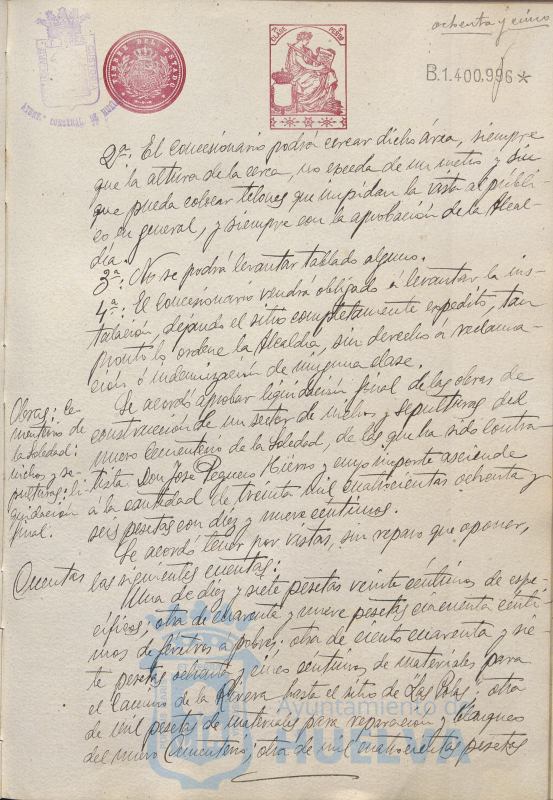 ochenta y cinco
TIMBRE DEL ESTADO
B.1.400.996*
2ª: El concesionario podrá cercar dicho área, siempre
que la altura de la cerca, no exceda de un metro y sin
que pueda colocar telones que impidan la vista al públi-
co en general, y siempre con la aprobación de la Alcal-
día.
3ª: No se podrá levantar tablado alguno.
4ª: El concesionario vendrá obligado á levantar la ins-
talación, dejando el sitio completamente expedito, tan
pronto lo ordene la Alcaldía, sin derecho á reclama-
ción ó indemnización de ninguna clase.
Obras: Ce-
menterio de
la Soledad:
nichos y se-
pulturas: li-
quidación
final.
Se acordó aprobar liquidación final de las obras de
construcción de un sector de nichos y sepulturas del
nuevo cementerio de la Soledad, de las que ha sido contra-
tista Don José Peguero Hierro y cuyo importe asciende
á la cantidad de treinta mil cuatrocientas ochenta y
seis pesetas con diez y nueve céntimos.
Se acordó tener por vistas, sin reparo que oponer,
Cuentas
las siguientes cuentas:
Una de diez y siete pesetas veinte céntimos de espe-
cíficos; otra de cuarenta y nueve pesetas cincuenta cénti-
mos de féretros a pobres; otra de ciento cuarenta y sie-
te pesetas ochenta y cinco céntimos de materiales para
el Camino de la Rivera hasta el sitio de "Las Colas"; otra
de mil pesetas de materiales para reparación y blanqueo
del nuevo Cementerio; otra de mil cuatrocientas pesetas
Ayuntamiento de
HUELVA